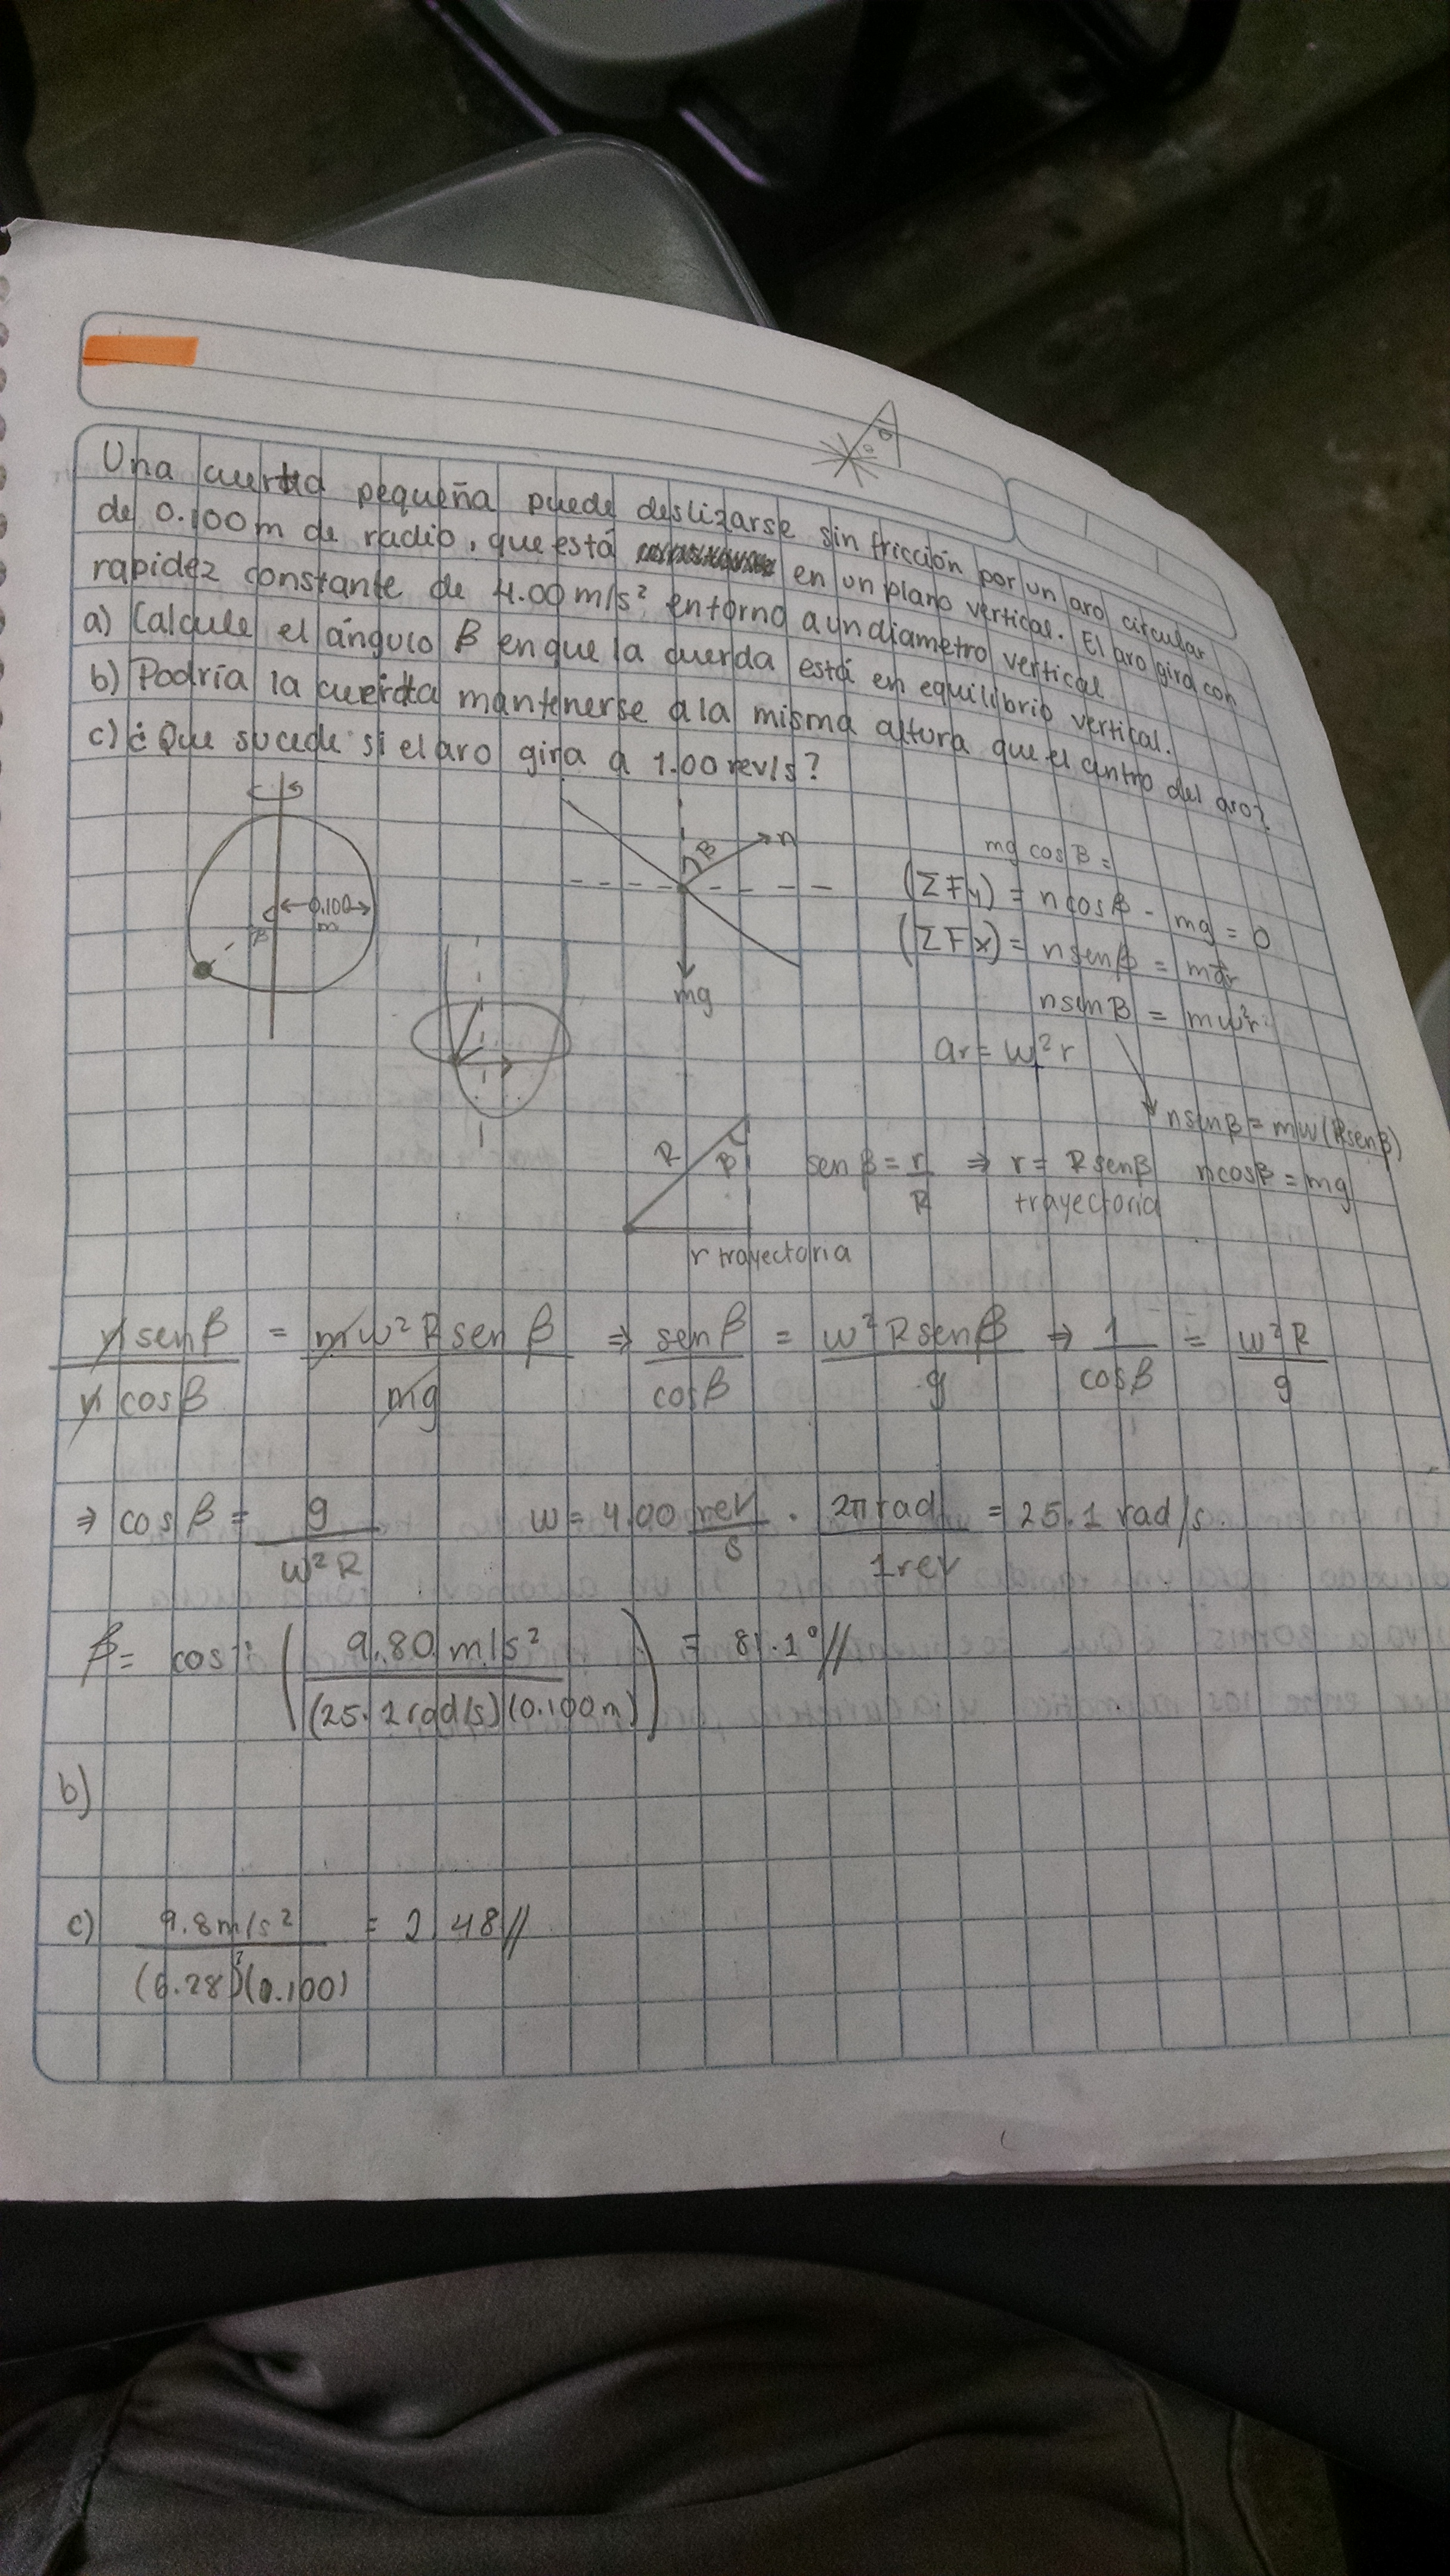 Una cuerta pequeña puede deslizarse sin fricción por un aro circular
de 0.100m de radio, que está en un plano vertical. El aro gira con
rapidez constante de 4.00 m/s² entorno a un diametro vertical
a) Calcule el ángulo β en que la querda está en equilibrio vertical.
b) Podría la cuerdta mantenerse a la misma altura que el centro del aro?
c) ¿Que sucede si el aro gira a 1.00 rev/s?
θ
θ
0.100
m
β
β
n
mg
mg cos β =
(ΣFy) = n cos β - mg = 0
(ΣFx) = n sen β = m ar
n sen β = m w² r
ar = w² r
n sen β = m w (R sen β)
R
β
sen β = r/R ⇒ r = R sen β
n cos β = mg
trayectoria
r trayectoria
n sen β / n cos β = m w² R sen β / mg ⇒ sen β / cos β = w² R sen β / g ⇒ 1 / cos β = w² R / g
⇒ cos β = g / w² R
w = 4.00 rev/s . 2π rad / 1 rev = 25.1 rad/s.
β = cos⁻¹ ( 9.80 m/s² / (25.1 rad/s)(0.100m) ) = 81.1° //
b)
c) 9.8 m/s² / (6.28)²(0.100) = 2.48 //